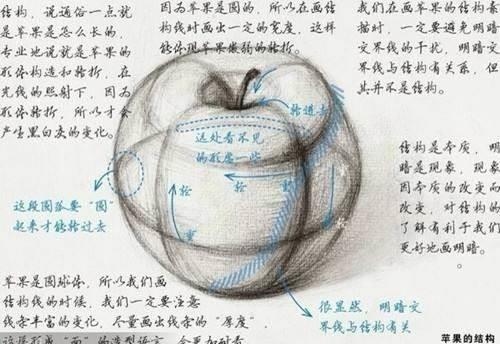 结构，说通俗一点就
是苹果是怎么长的，
专业地说就是苹果的
形体构造和转折，在
光线的照射下，因为
形体转折，所以才会
产生黑白灰的变化。
因为苹果是圆的，所以在画结
构线时画出一定的宽度，这样
能体现苹果微韵的转折。
我们在画苹果的结构素
描时，一定要避免明暗
交界线的干扰，明暗交
界线与结构有关系，但
其并不是结构。
转进去
这处看不见
的形虚一些
轻
轻
重
重
这段圆弧要“圆”
起来才能转过去
结构是本质，明
暗是现象，现象
因本质的改变而
改变，对结构的
了解有利于我们
更好地画明暗。
苹果是圆球体，所以我们画
结构线的时候，我们一定要注意
线条丰富的变化，尽量画出线条的“厚度”，
很显然，明暗交
界线与结构有关
苹果的结构